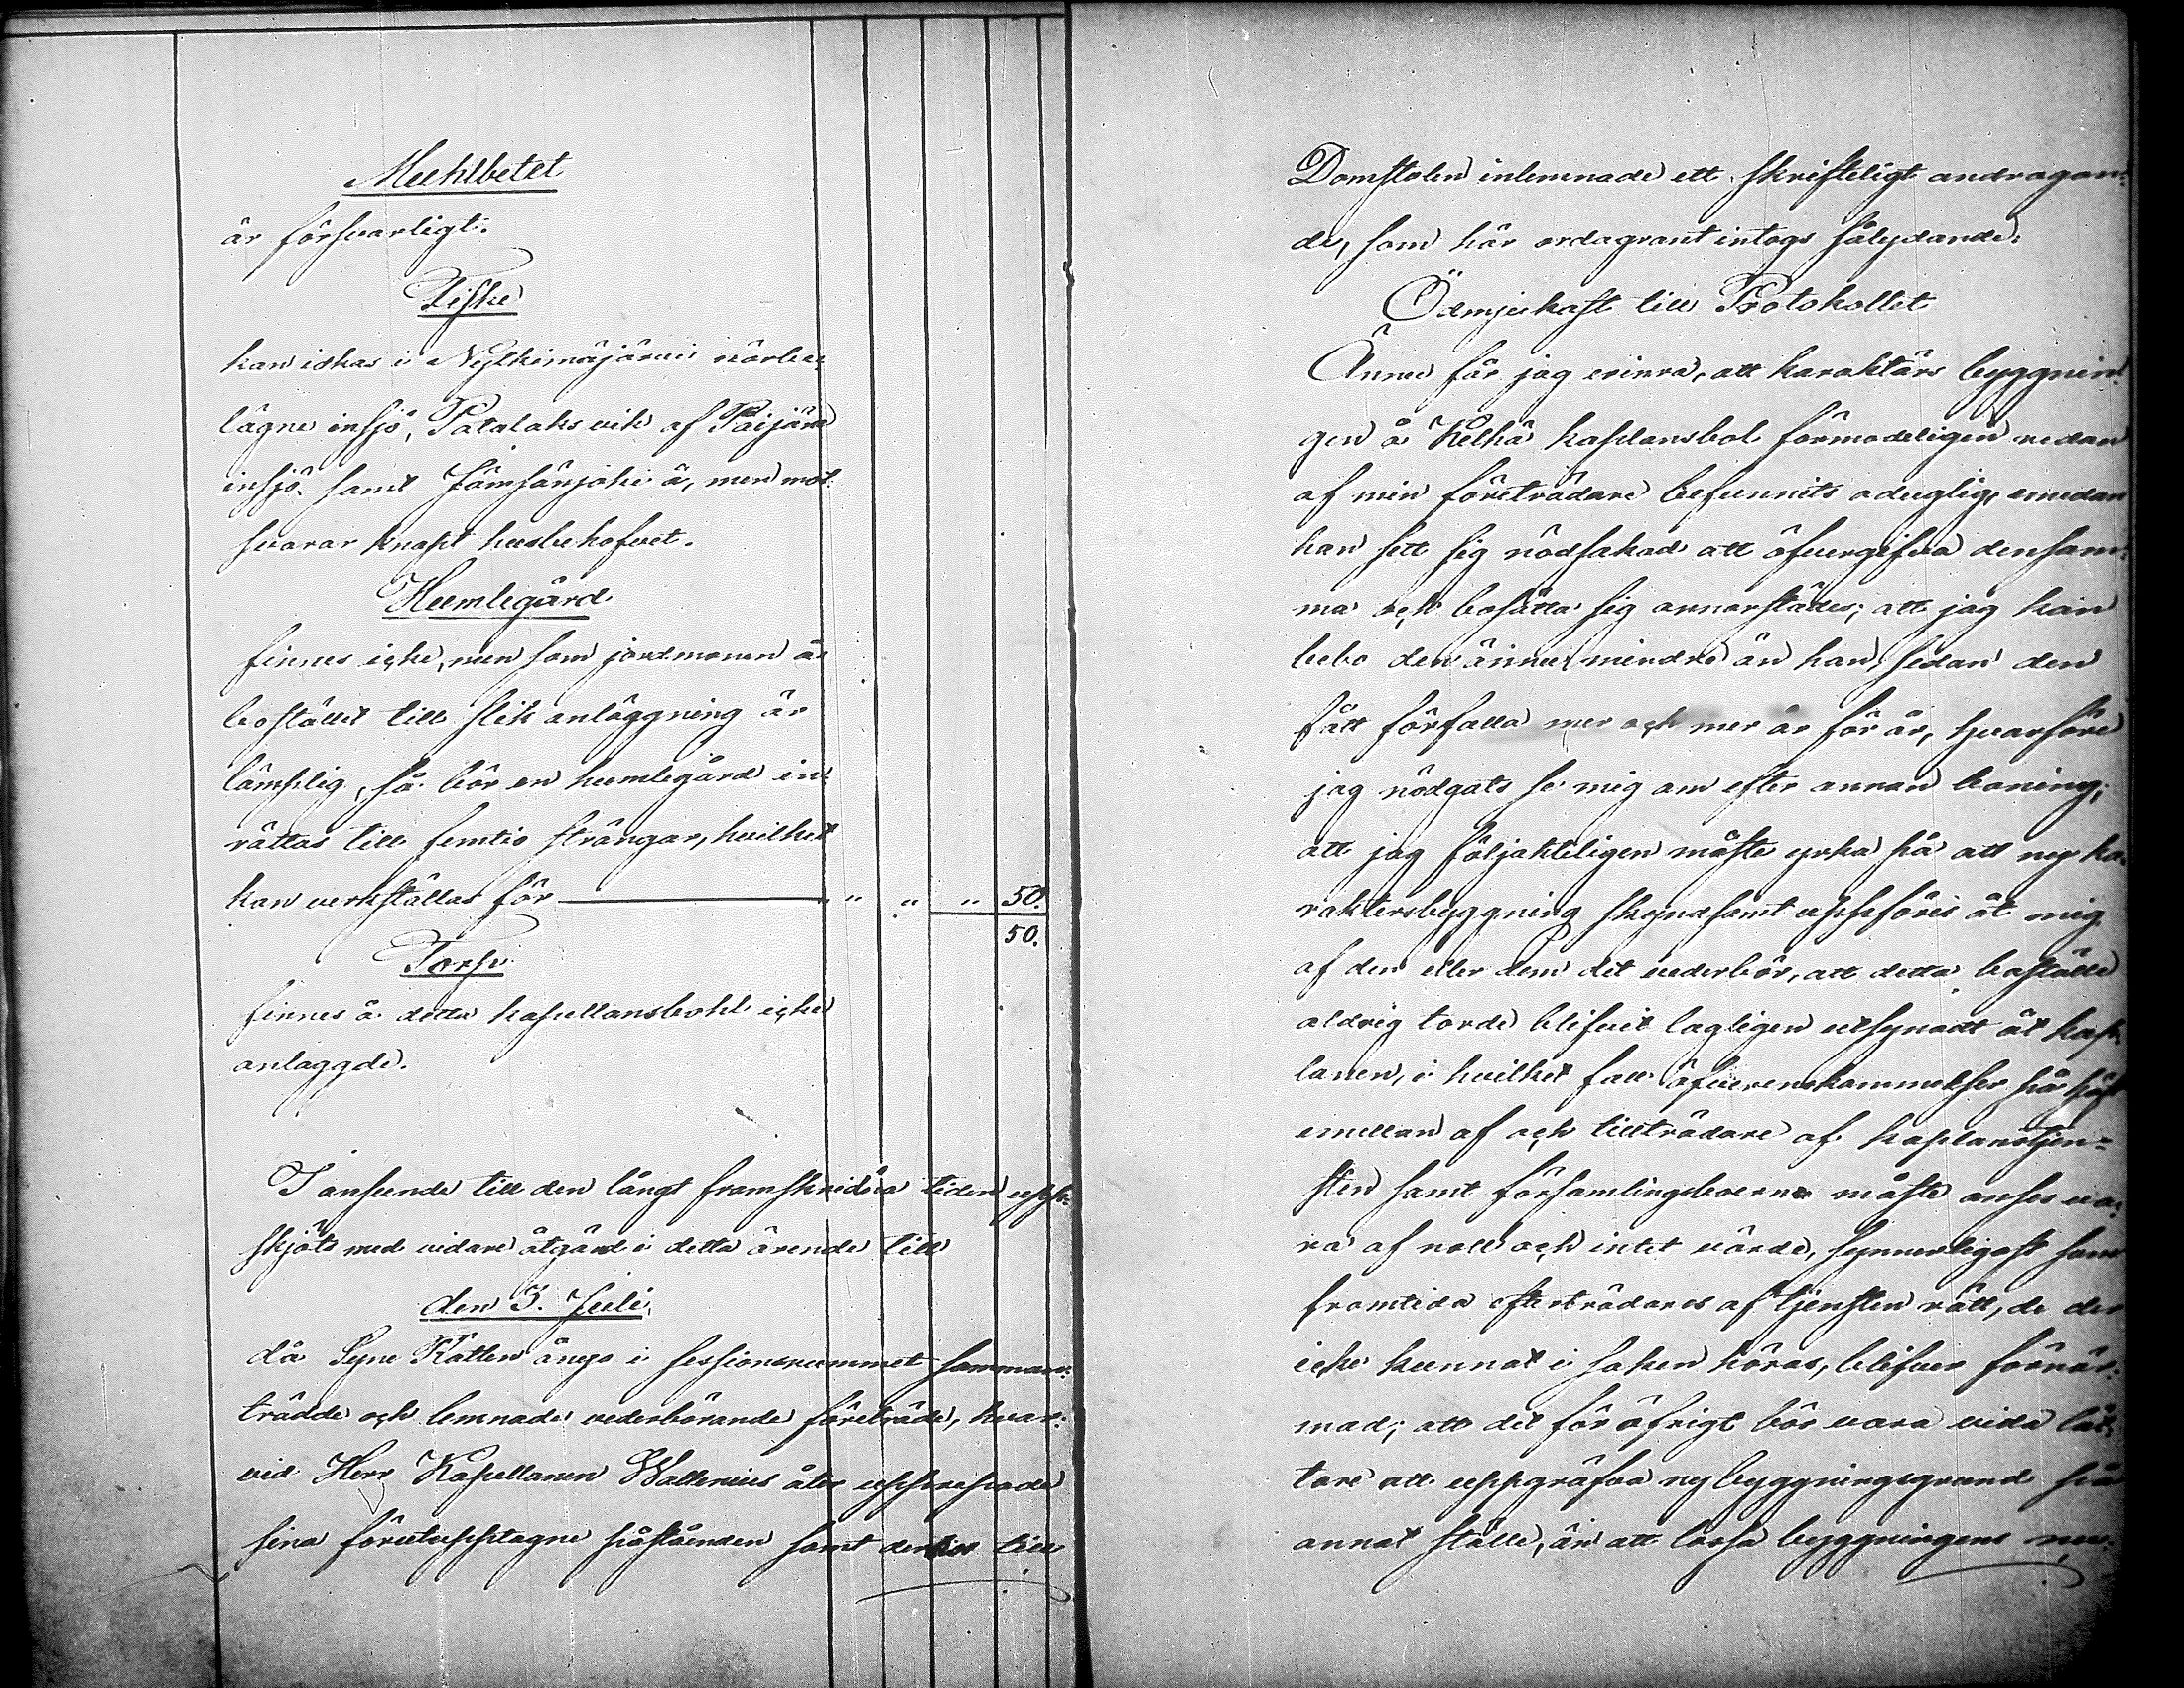 Muhlbetet
är försvarligt.
Fiske
kan idkas i Nytkimäjärvi närbe,,
lägne insjö, Patalaks vik af Paijäne
insjö, samt Jämsänjoki å, men mot
svarar knapt husbehofvet.
Humlegård
finnes icke, men som jordmonen å
bostället till slik anläggning är
lämplig, så bör en humlegård in
rättas till femtio stängar, hvilket
kan verkställas för " " " 50.
50.
Torp
finnes å detta kapellansbohl icke
anlaggde.
I anseende till den långt framskridna tiden upp=
skjöts med vidare åtgärd i detta ärende till
den 3. Juli,
då Syne Rätten ånyo i sessionsrummet samman=
trädde och lemnade vederbörande företräde, hvar=
vid Herr Kapellanen Wallenius åter upprepade
sina förutupptagne påståenden samt till
Domstolen inlemnade ett skrifteligt andragan=
de, som här ordagrant intogs sålydande:
Ödmjukast till Protokollet
Ännu får jag erinra, att karaktärs byggnin=
gen å Kelhä kaplansbol förmodeligen redan
af min företrädare befunnits oduglig, emedan
han sett sig nödsakad att öfvergifva densam=
ma och bosätta sig annorstädes; att jag kan
bebo den ännu mindre än han, sedan den
fått förfalla mer och mer år för år, hvarföre
jag nödgats se mig om efter annan boning;
att jag följakteligen måste yrka på att ny ka=
raktersbyggning skyndsamt uppföres åt mig
af den eller dem det vederbör, att detta boställe
aldrig torde blifvit lagligen utsynadt åt kap=
lanen, i hvilket fall öfverenskommelser här
emellan af och tillträdare af kaplanstjen=
sten samt församlingsboerne måste anses va=
ra af noll och intet värde, synnerligast som
framtida efterträdares af tjensten rätt, de der
icke kunnat i saken höras, blifver förnär=
mad; att det för öfrigt bör vara vida lät=
tare att uppgräfva ny byggningsgrund på
annat ställe, än att lossa byggningens nu=